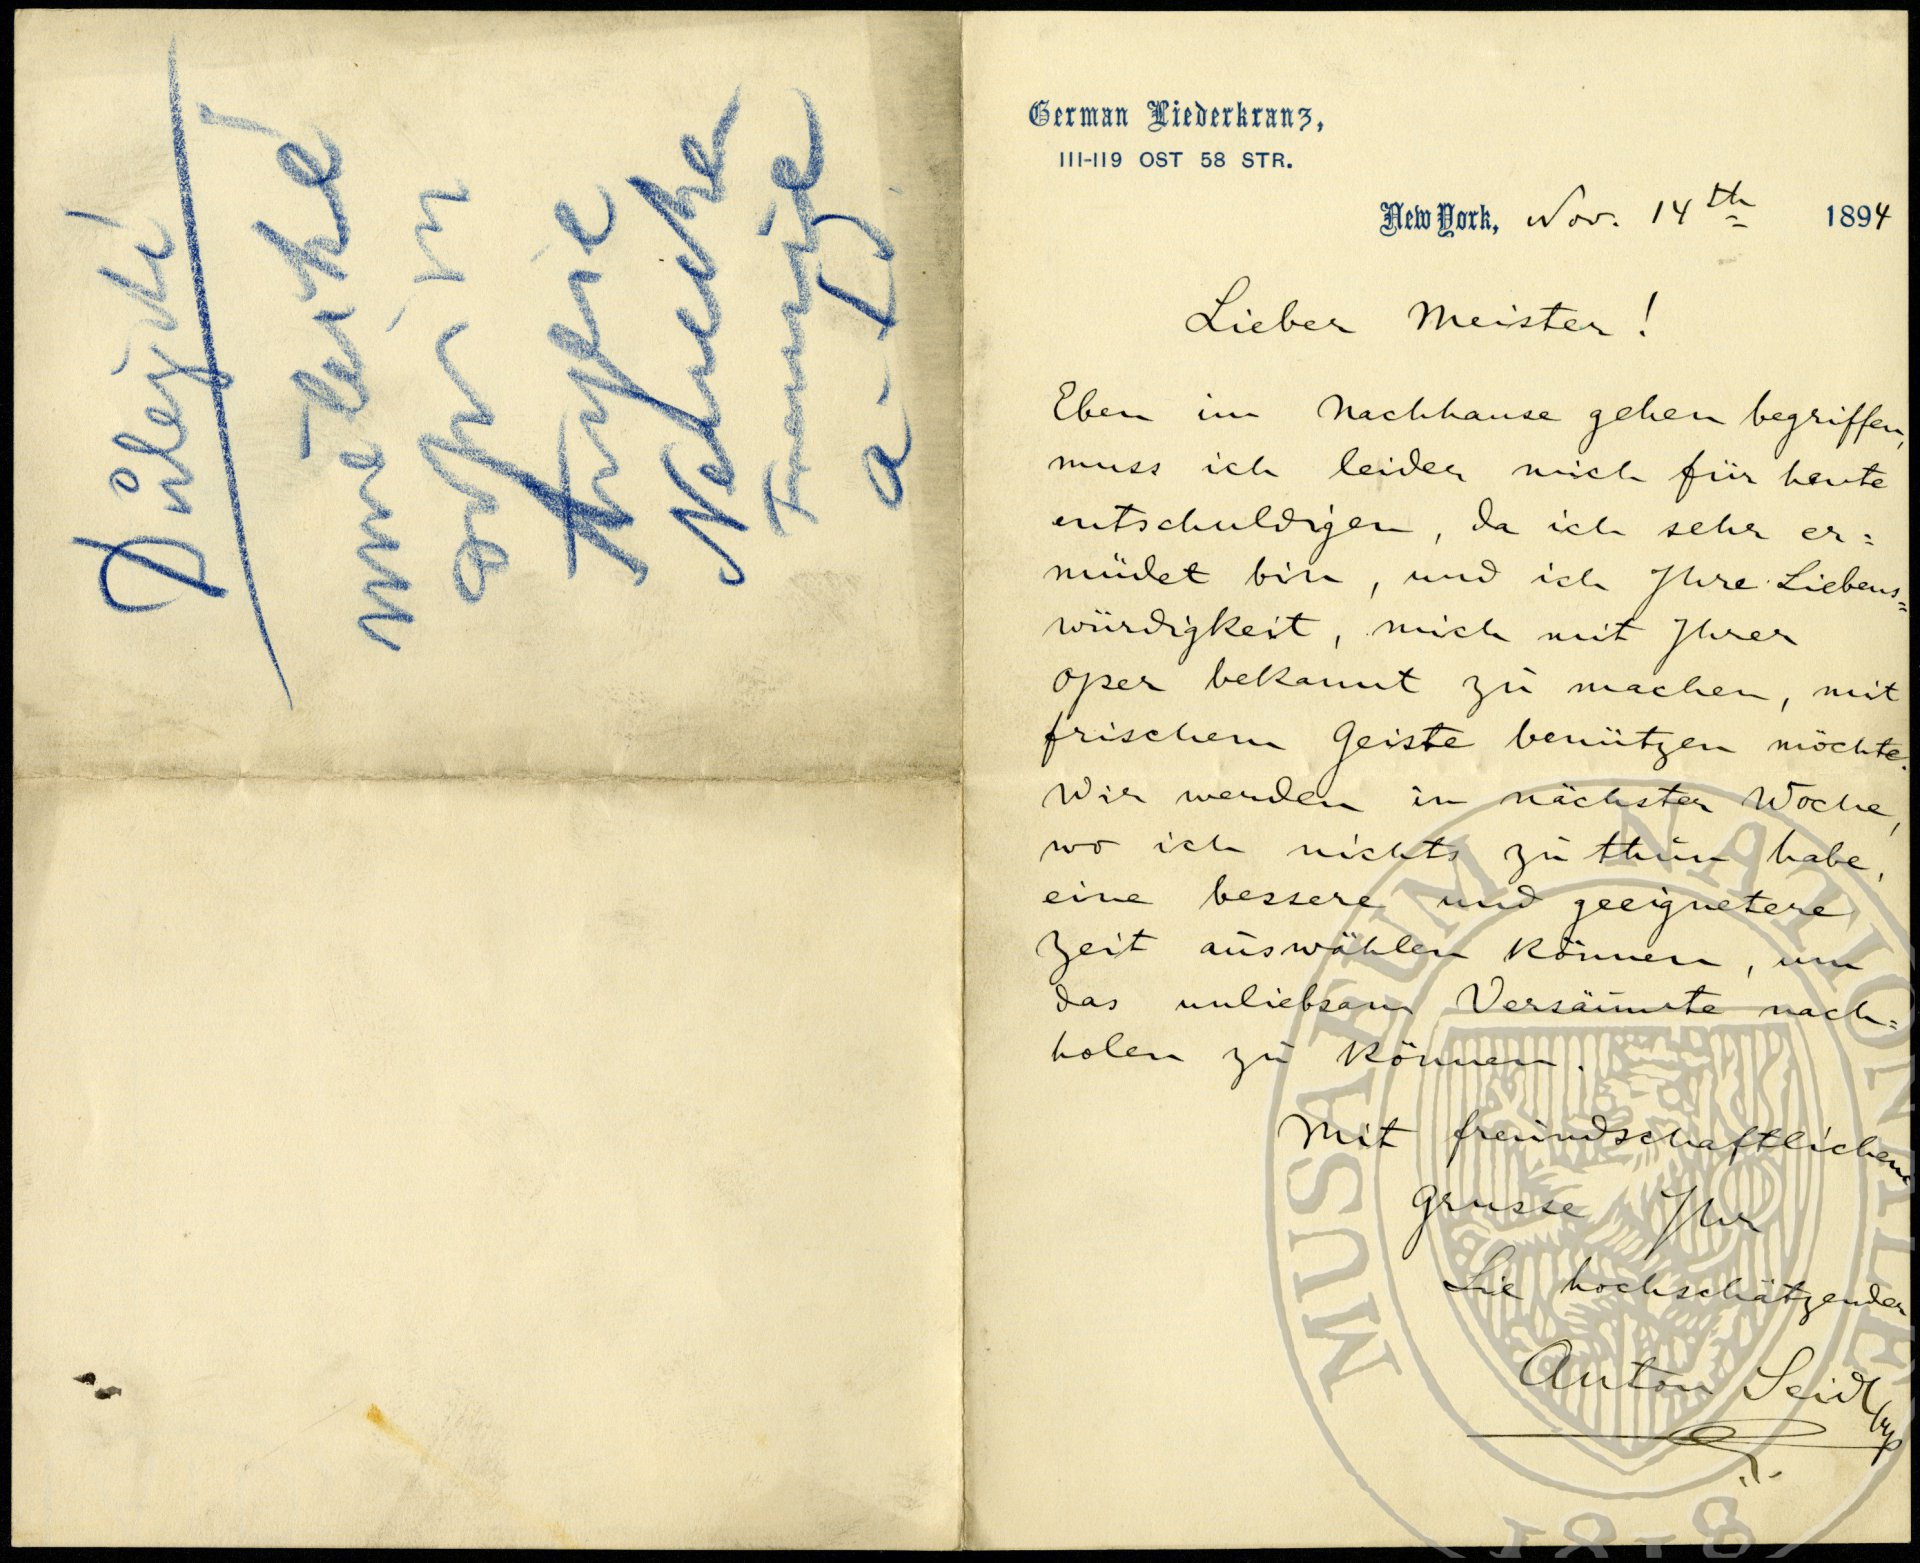 Důležité
umělecké
Nebreska
a - D
German Liederkranz,
111-119 OST 58 STR.
New York, Nov. 14th 1894
Lieber Meister!
Eben im Nachhause gehen begriffen,
muss ich leider mich für heute
entschuldigen, da ich sehr er=
müdet bin, und ich Ihre Liebens=
würdigkeit, mich mit Ihrer
Oper bekannt zu machen, mit
frischem Geiste benützen möchte.
Wir werden in nächster Woche,
wo ich nichts zu thun habe,
eine bessere und geeignetere
Zeit auswählen können, um
das unliebsam Versäumte nach=
holen zu können.
Mit freundschaftlichem
Grusse Ihr
Sie hochschätzender
Anton Seidl
MUSAEUM NATIONALE
1818